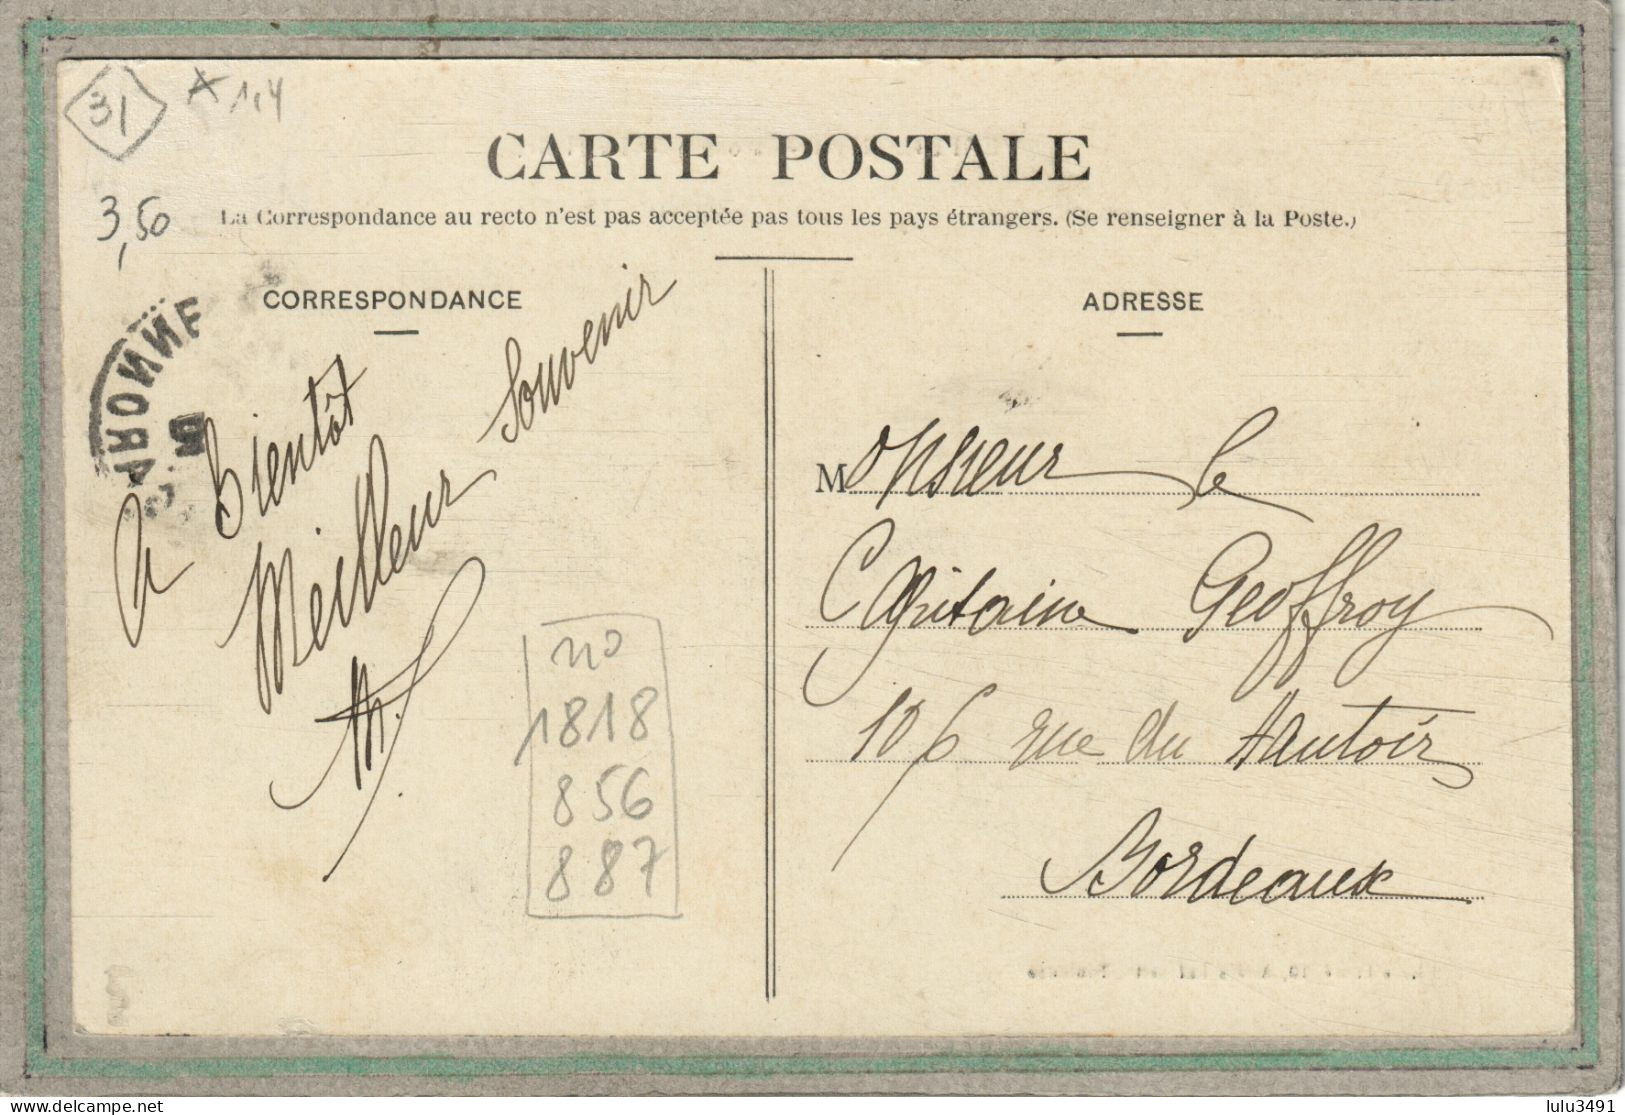 31
1,4
CARTE POSTALE
La Correspondance au recto n'est pas acceptée pas tous les pays étrangers. (Se renseigner à la Poste.)
3,50
CORRESPONDANCE
A bientôt
Meilleur Souvenir
ADRESSE
Monsieur le
Capitaine Geoffroy
106 rue du Hautoir
Bordeaux
no
1818
856
887
lulu3491